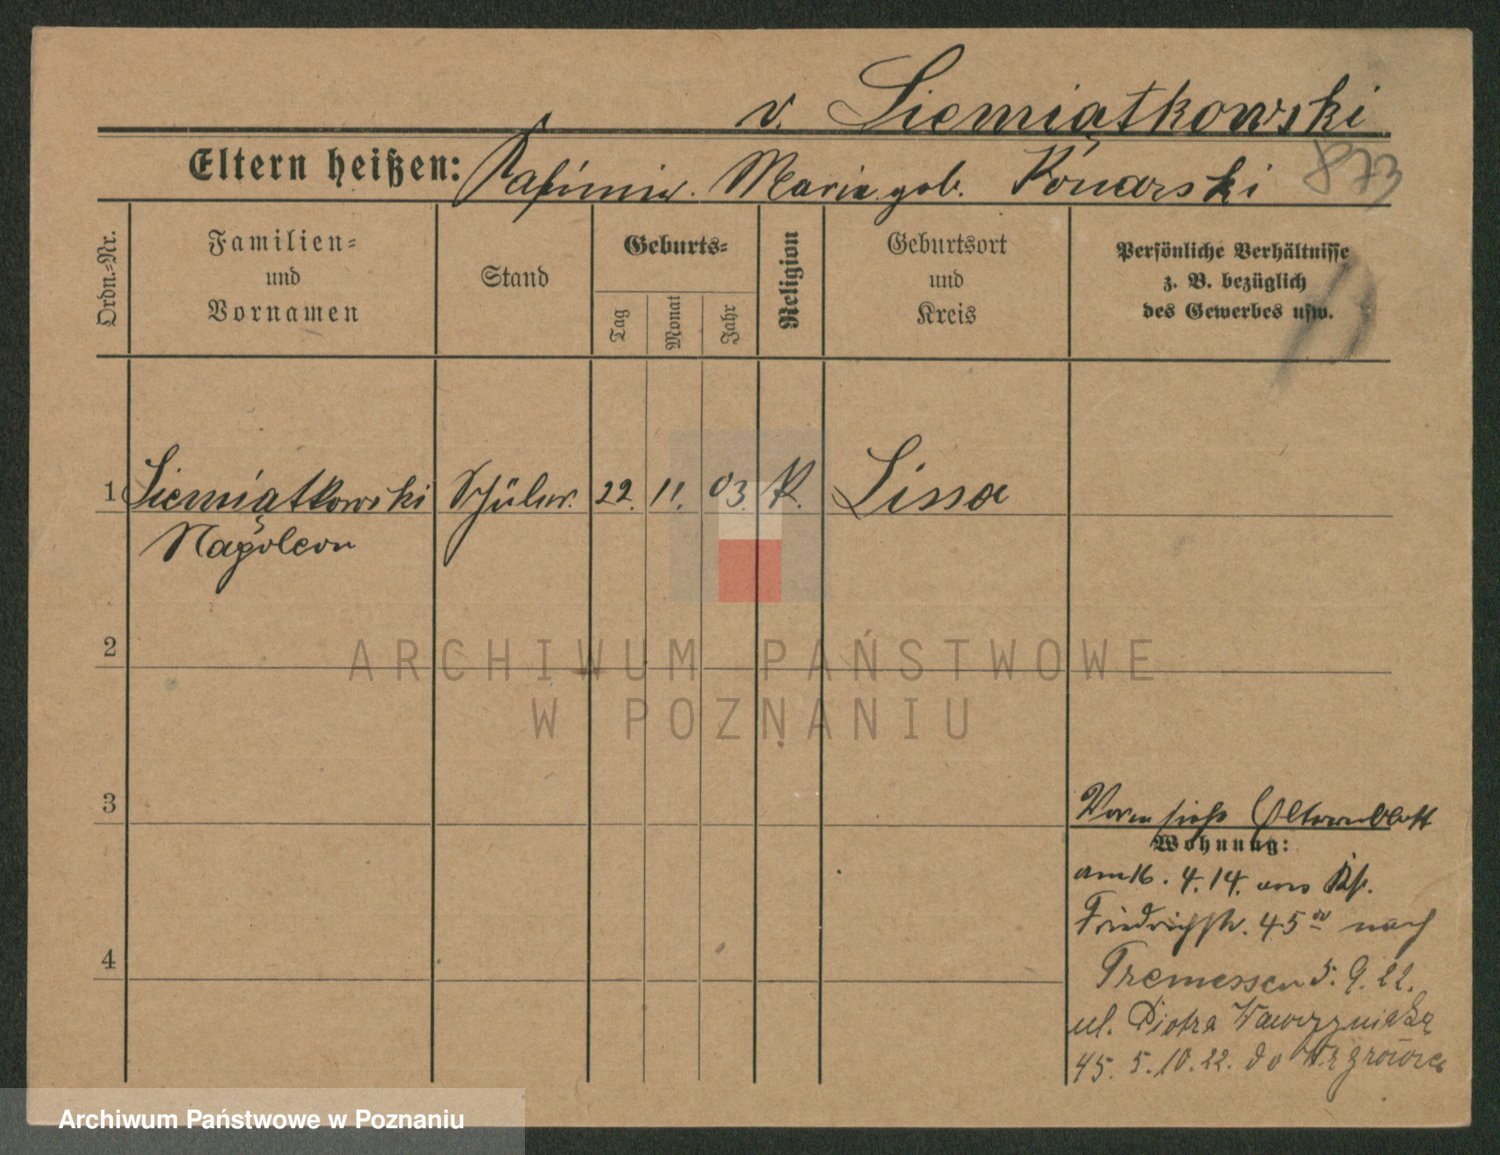 v. Siemiątkowski
Eltern heißen: Kasimir. Maria geb. Konarski
873
Ordn.-Nr.
Familien-
und
Vornamen
Stand
Geburts-
Tag
Monat
Jahr
Religion
Geburtsort
und
Kreis
Persönliche Verhältnisse
z. B. bezüglich
des Gewerbes usw.
1 Siemiątkowski Schüler. 22. 11. 03. K. Lissa
Napoleon
2
3
4
Vorm siehe Elternblatt
Wohnung:
am 16. 4. 14. von
Friedrichstr. 45 nach
Tremessen 5. 9. 22.
ul. Piotra Wawrzyniaka
45. 5. 10. 22. do Wągrówca
ARCHIWUM PAŃSTWOWE
W POZNANIU
Archiwum Państwowe w Poznaniu